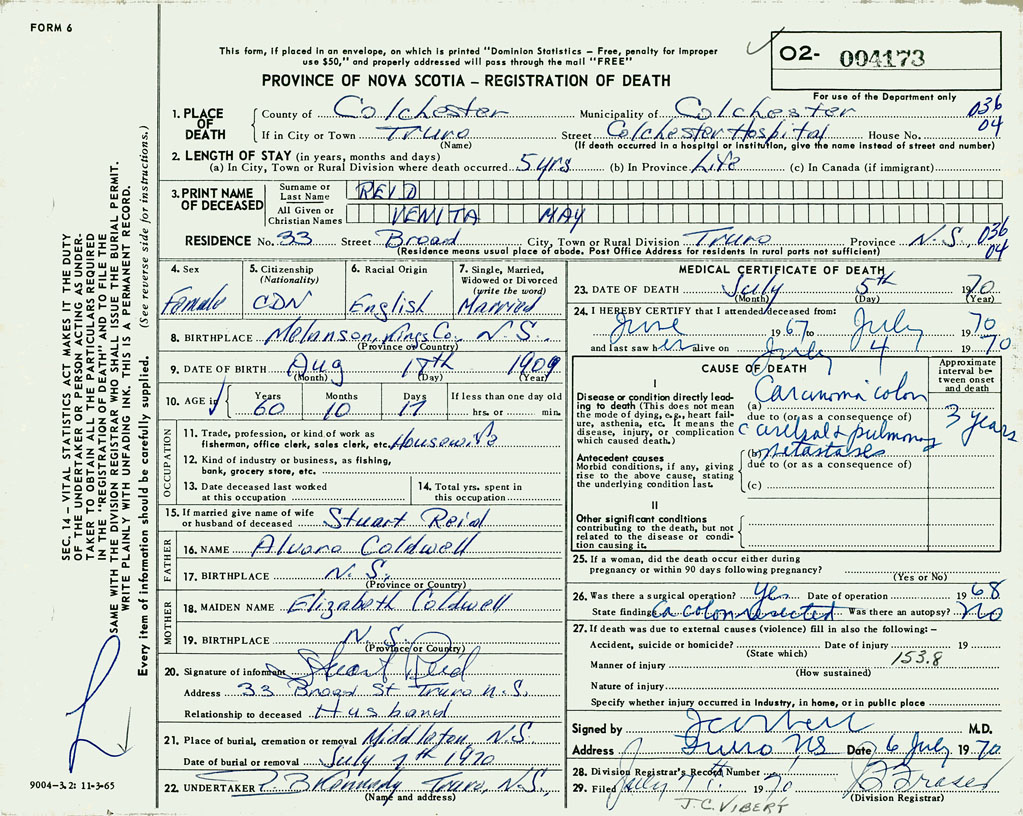 FORM 6
This form, if placed in an envelope, on which is printed "Dominion Statistics – Free, penalty for improper
use $50," and properly addressed will pass through the mail "FREE"
PROVINCE OF NOVA SCOTIA – REGISTRATION OF DEATH
O2- 004173
For use of the Department only
SEC. 14 – VITAL STATISTICS ACT MAKES IT THE DUTY
OF THE UNDERTAKER OR PERSON ACTING AS UNDER-
TAKER TO OBTAIN ALL THE PARTICULARS REQUIRED
IN THE "REGISTRATION OF DEATH" AND TO FILE THE
SAME WITH THE DIVISION REGISTRAR WHO SHALL ISSUE THE BURIAL PERMIT.
WRITE PLAINLY WITH UNFADING INK. THIS IS A PERMANENT RECORD.
Every item of information should be carefully supplied. (See reverse side for instructions.)
1. PLACE OF DEATH
County of Colchester Municipality of Colchester 036
If in City or Town Truro Street Colchester Hospital House No. 04
(Name) (If death occurred in a hospital or institution, give the name instead of street and number)
2. LENGTH OF STAY (in years, months and days)
(a) In City, Town or Rural Division where death occurred 5 yrs (b) In Province Life (c) In Canada (if immigrant)
3. PRINT NAME OF DECEASED
Surname or Last Name REID
All Given or Christian Names VENITA MAY
RESIDENCE No. 33 Street Broad City, Town or Rural Division Truro Province N.S. 036 04
(Residence means usual place of abode. Post Office Address for residents in rural parts not sufficient)
4. Sex Female
5. Citizenship (Nationality) CDN
6. Racial Origin English
7. Single, Married, Widowed or Divorced (write the word) Married
8. BIRTHPLACE Melanson, Kings Co., N.S.
(Province or Country)
9. DATE OF BIRTH Aug 18th 1909
(Month) (Day) (Year)
10. AGE in Years 60 Months 10 Days 17 If less than one day old hrs. or min.
OCCUPATION
11. Trade, profession, or kind of work as
fisherman, office clerk, sales clerk, etc. Housewife
12. Kind of industry or business, as fishing,
bank, grocery store, etc.
13. Date deceased last worked
at this occupation
14. Total yrs. spent in
this occupation
15. If married give name of wife
or husband of deceased Stuart Reid
FATHER
16. NAME Alvara Coldwell
17. BIRTHPLACE N.S.
(Province or Country)
MOTHER
18. MAIDEN NAME Elizabeth Coldwell
19. BIRTHPLACE N.S.
(Province or Country)
20. Signature of informant Stuart Reid
Address 33 Broad St Truro N.S.
Relationship to deceased Husband
21. Place of burial, cremation or removal Middleton, N.S.
Date of burial or removal July 7th 1970
22. UNDERTAKER Kennedy Truro, N.S.
(Name and address)
9004-3.2: 11-3-65
MEDICAL CERTIFICATE OF DEATH
23. DATE OF DEATH July 5th 1970
(Month) (Day) (Year)
24. I HEREBY CERTIFY that I attended deceased from:
June 1967 to July 1970
and last saw her alive on July 4 1970
CAUSE OF DEATH
Approximate interval between onset and death
I
Disease or condition directly lead-
ing to death (This does not mean
the mode of dying, e.g., heart fail-
ure, asthenia, etc. It means the
disease, injury, or complication
which caused death.)
(a) Carcinoma colon
due to (or as a consequence of)
3 years
cerebral & pulmonary
Antecedent causes
Morbid conditions, if any, giving
rise to the above cause, stating
the underlying condition last.
(b) metastases
due to (or as a consequence of)
(c)
II
Other significant conditions
contributing to the death, but not
related to the disease or condi-
tion causing it.
25. If a woman, did the death occur either during
pregnancy or within 90 days following pregnancy?
(Yes or No)
26. Was there a surgical operation? Yes Date of operation 1968
State findings Ca colon resected Was there an autopsy? No
27. If death was due to external causes (violence) fill in also the following: –
Accident, suicide or homicide? Date of injury 19
(State which) 153.8
Manner of injury
(How sustained)
Nature of injury
Specify whether injury occurred in industry, in home, or in public place
Signed by M.D.
Address Truro NS Date 6 July 1970
28. Division Registrar's Record Number
29. Filed July 7th 1970 Fraser
(Division Registrar)
J.C. VIBERT